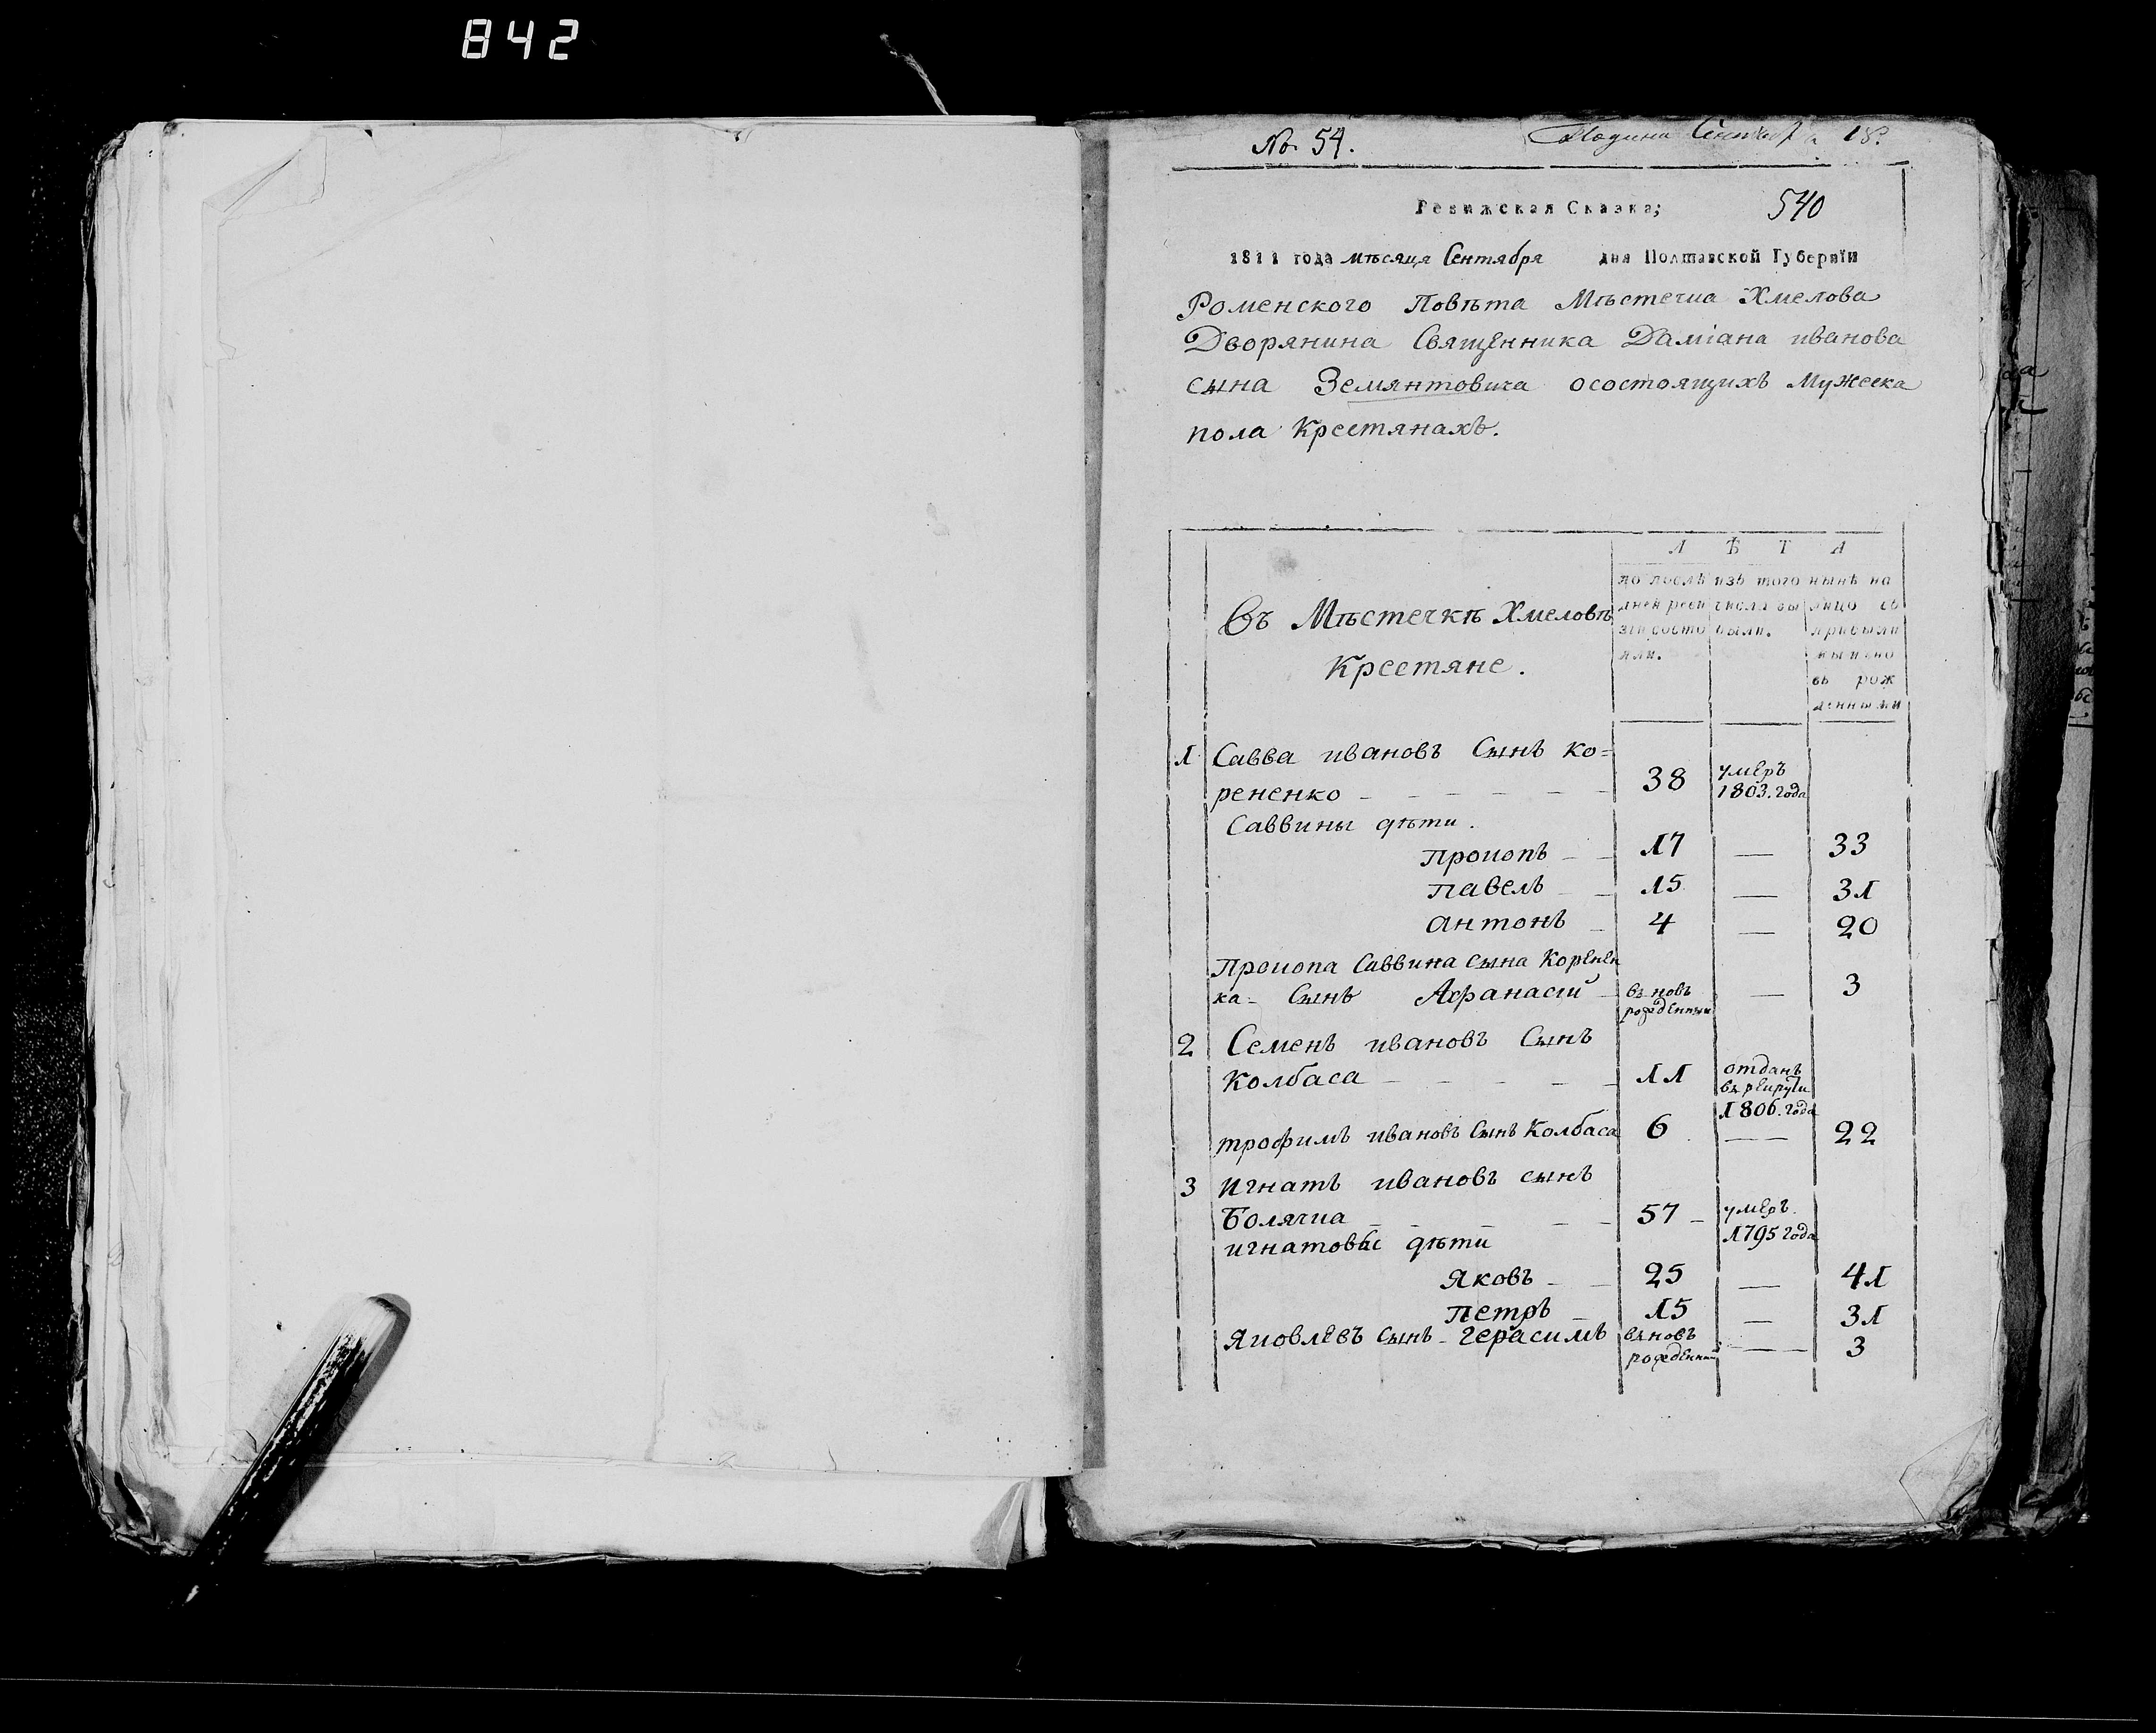 842
No. 54.
Подана Сентября 18.
Ревижская Сказка;
540
1811 года мѣсяця Сентября дня Полтавской Губернїи
Роменского Повѣта Мѣстечка Хмелова
Дворянина Священника Даміана иванова
сына Земянтовича осостоящихъ Мужеска
пола Крестянахъ.
Л Ѣ Т А
Въ Мѣстечкѣ Хмеловѣ
Крестяне.
по послѣ
дней реви
зіи состо
яли.
изъ того
числа вы
были.
нынѣ на
лицо съ
прибыли
ми и но
въ рож
денными
1 Савва ивановъ Сынъ ко=
ренeнко 38 умеръ 1803. года
Саввины дѣти.
прокопъ 17 — 33
павелъ 15 — 31
антонъ 4 — 20
Прокопа Саввина сына Коренен
ка= Сынъ Афанасій въновь рожденный — 3
2 Семенъ ивановъ Сынъ
Колбаса 11 отданъ въ рекруты 1806. года
трофимъ ивановъ Сынъ Колбаса 6 — 22
3 Игнатъ ивановъ сынъ
Болячка 57 умеръ. 1795 года
игнатовы дѣти
Яковъ 25 — 41
петръ 15 — 31
Яковлевъ сынъ герасимъ въновь рожденный — 3